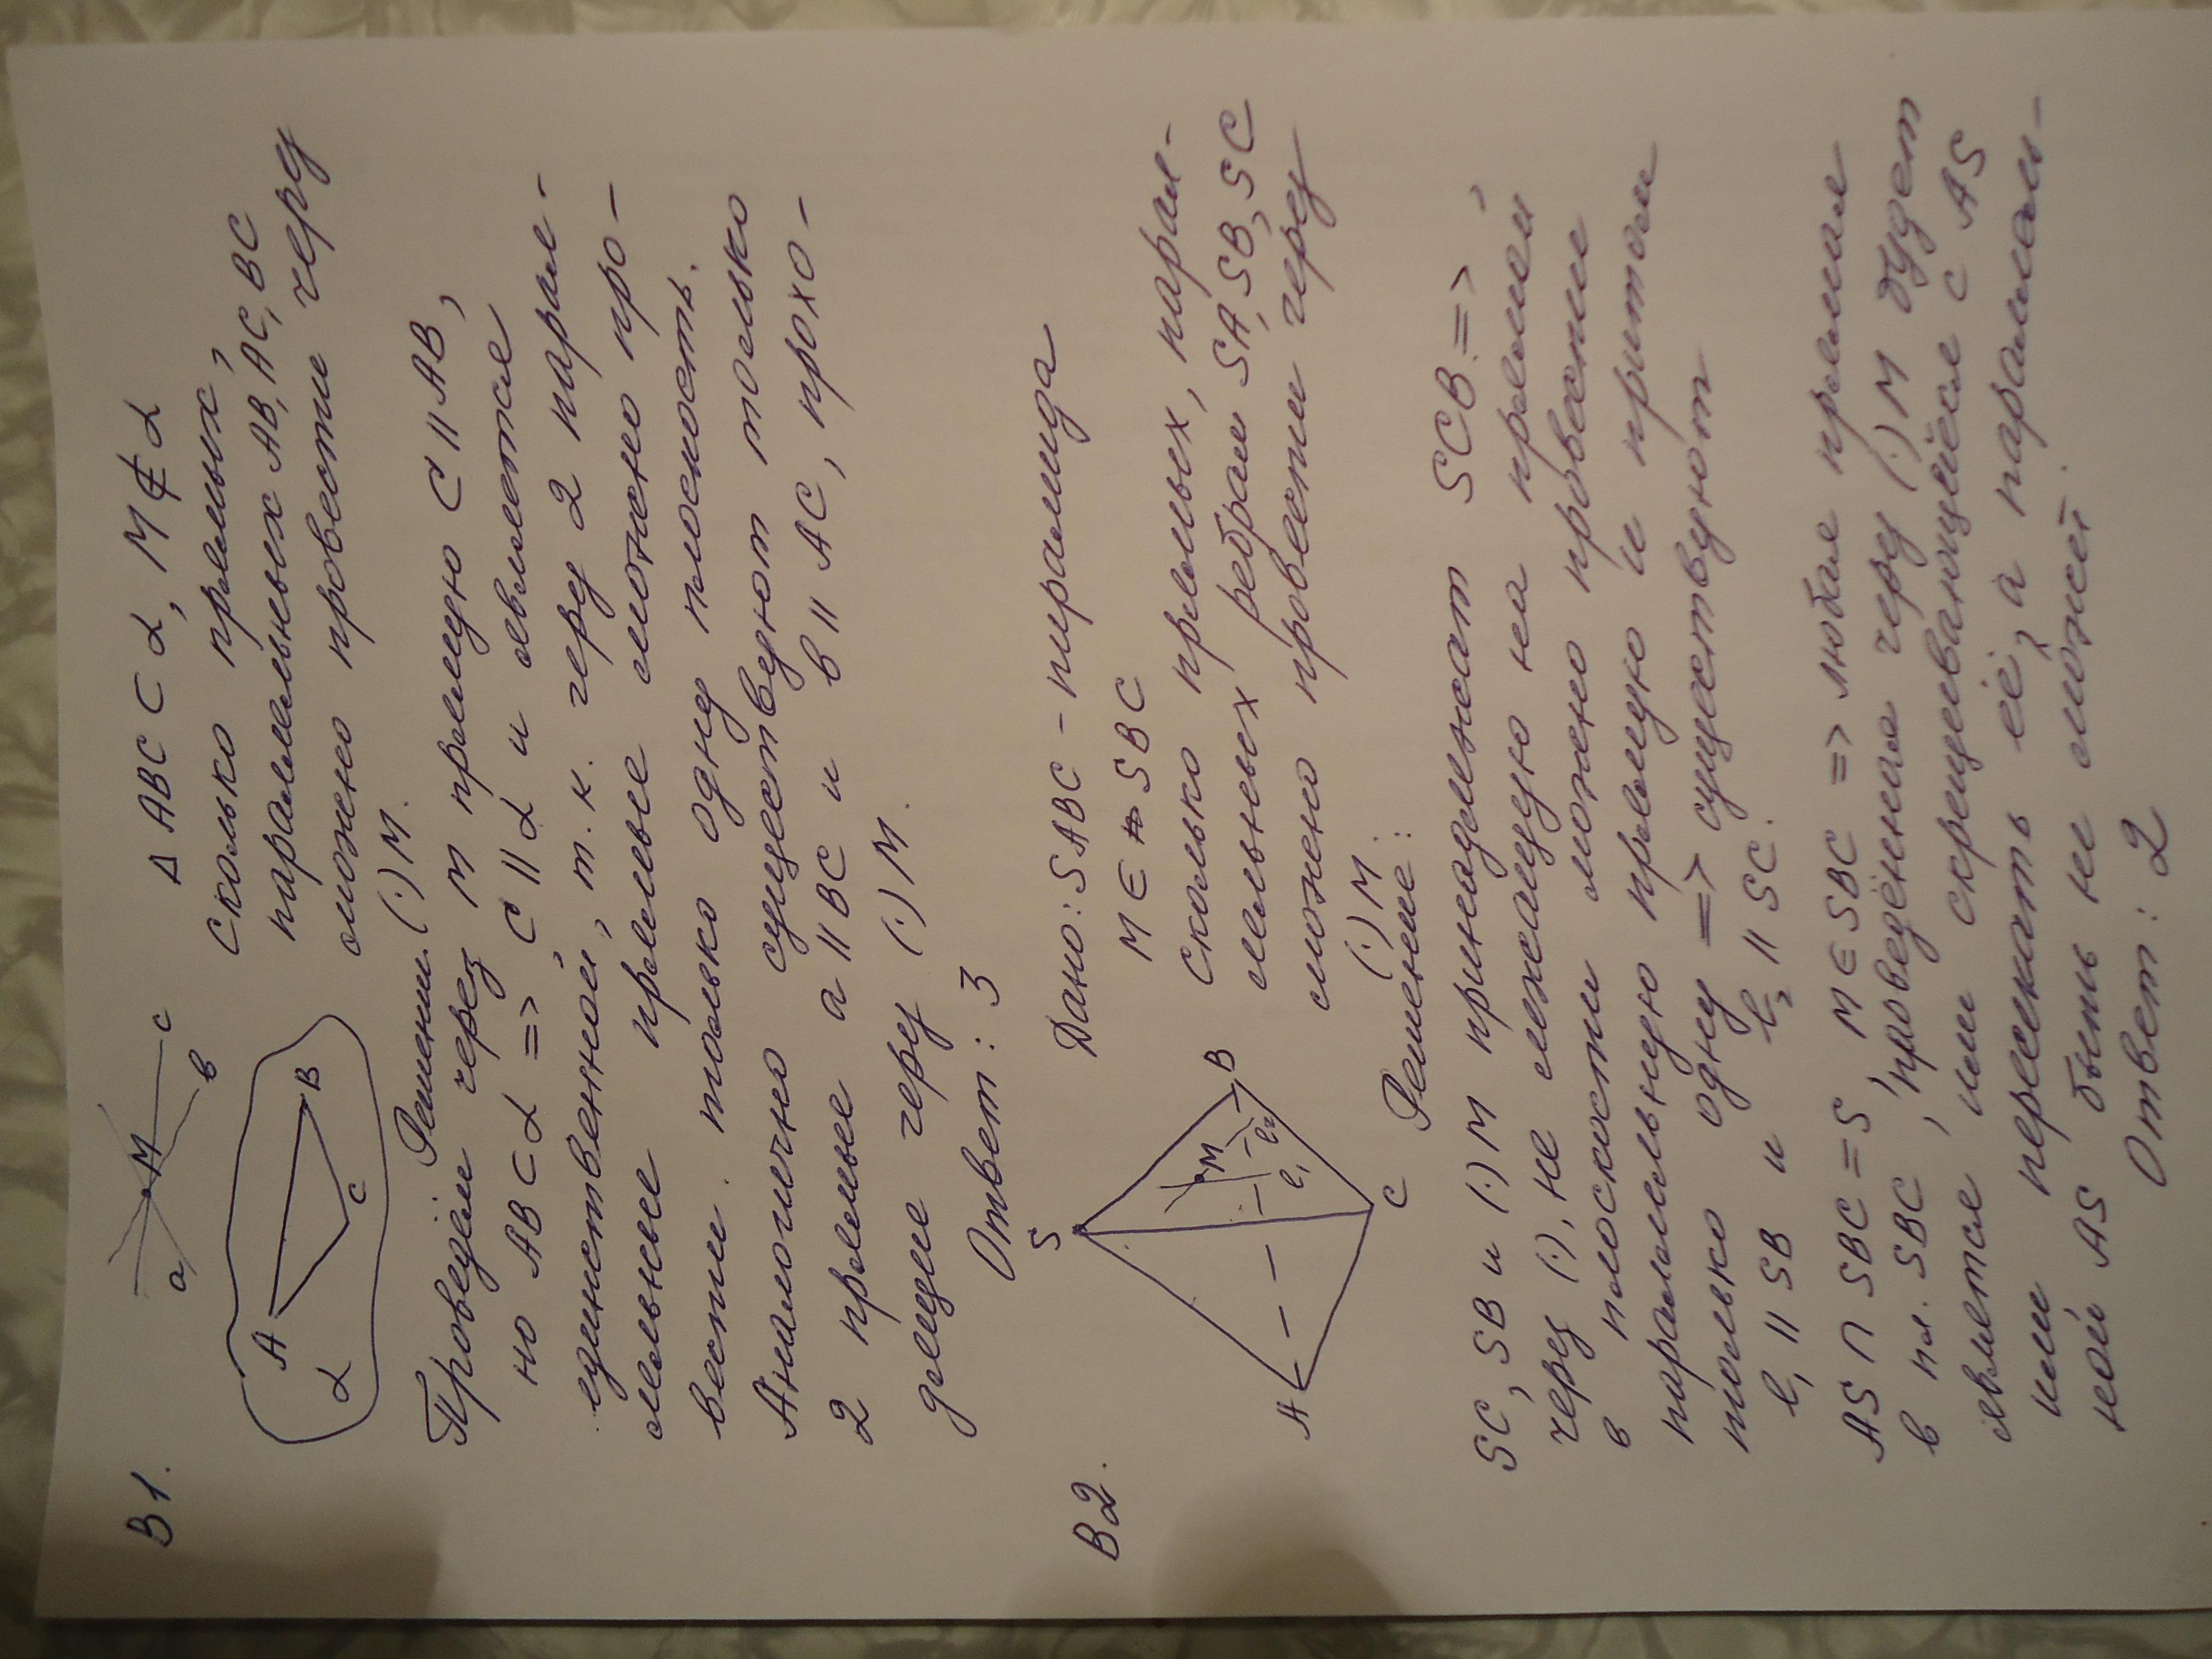 В1.
a
M
в
c
A
B
C
α
Δ ABC ⊂ α, M ∉ α
Сколько прямых,
параллельных AB, AC, BC
можно провести через
(·) M.
Решение.
Проведём через М прямую C ∥ AB,
но AB ⊂ α => C ∥ α и является
единственной, т.к. через 2 парал-
лельные прямые можно про-
вести только одну плоскость.
Аналогично существуют только
2 прямые a ∥ BC и в ∥ AC, прохо-
дящие через (·) M.
Ответ: 3
В2.
S
A
B
C
M
l₁
l₂
Дано: SABC - пирамида
M ∈ SBC
Сколько прямых, парал-
лельных ребрам SA, SB, SC
можно провести через
(·) M.
Решение:
SC, SB и (·) M принадлежат SCB =>
через (·), не лежащую на прямой,
в плоскости можно провести
параллельную прямую и притом
только одну => существуют
l₁ ∥ SB и l₂ ∥ SC.
AS ∩ SBC = S M ∈ SBC => любая прямая
в пл. SBC, проведённая через (·) M будет
является или скрещивающейся с AS
или пересекать её, а параллель-
ной AS быть не может.
Ответ: 2